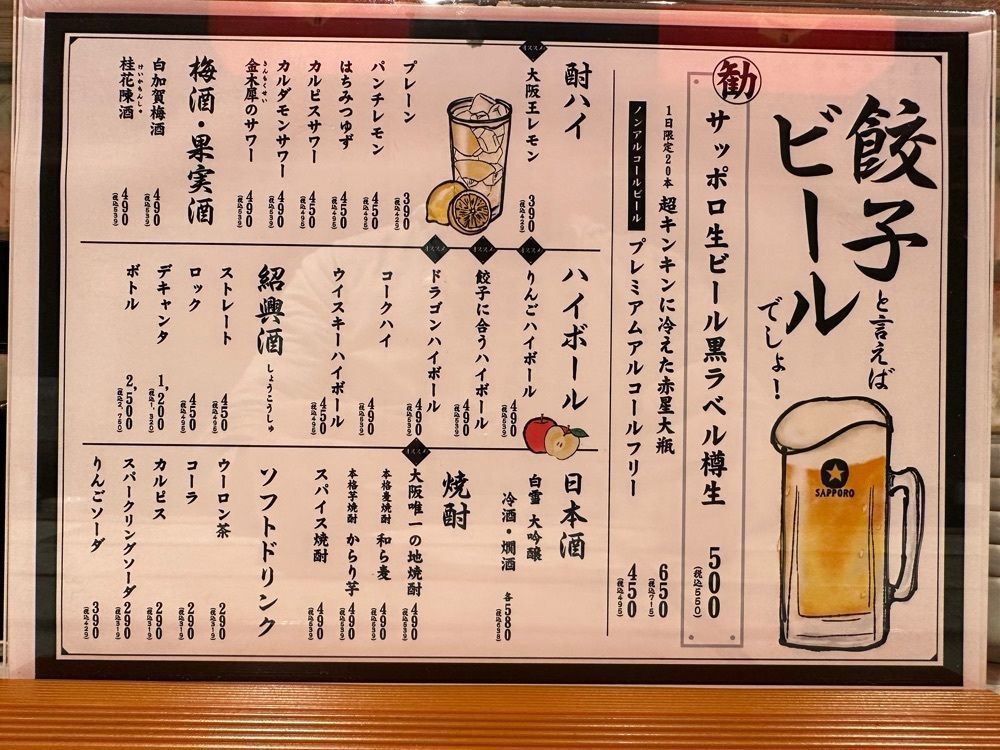 餃子と言えば
ビールでしょ！
SAPPORO
勧
サッポロ生ビール黒ラベル樽生 500 (税込550)
1日限定20本 超キンキンに冷えた赤星大瓶 650 (税込715)
ノンアルコールビール プレミアムアルコールフリー 450 (税込495)
酎ハイ
オススメ 大阪王レモン 390 (税込429)
プレーン 390 (税込429)
パンチレモン 450 (税込495)
はちみつゆず 450 (税込495)
カルピスサワー 450 (税込495)
カルダモンサワー 490 (税込539)
金木犀のサワー 490 (税込539)
きんもくせい
梅酒・果実酒
白加賀梅酒 490 (税込539)
桂花陳酒 490 (税込539)
けいかちんしゅ
ハイボール
オススメ りんごハイボール 490 (税込539)
オススメ 餃子に合うハイボール 490 (税込539)
オススメ ドラゴンハイボール 490 (税込539)
コークハイ 490 (税込539)
ウイスキーハイボール 450 (税込495)
紹興酒 しょうこうしゅ
ストレート 450 (税込495)
ロック 450 (税込495)
デキャンタ 1,200 (税込1,320)
ボトル 2,500 (税込2,750)
日本酒
白雪 大吟醸
冷酒・燗酒 各580 (税込638)
焼酎
オススメ 大阪唯一の地焼酎 490 (税込539)
本格麦焼酎 和ら麦 490 (税込539)
本格芋焼酎 からり芋 490 (税込539)
スパイス焼酎 490 (税込539)
ソフトドリンク
ウーロン茶 290 (税込319)
コーラ 290 (税込319)
カルピス 290 (税込319)
スパークリングソーダ 290 (税込319)
りんごソーダ 390 (税込429)